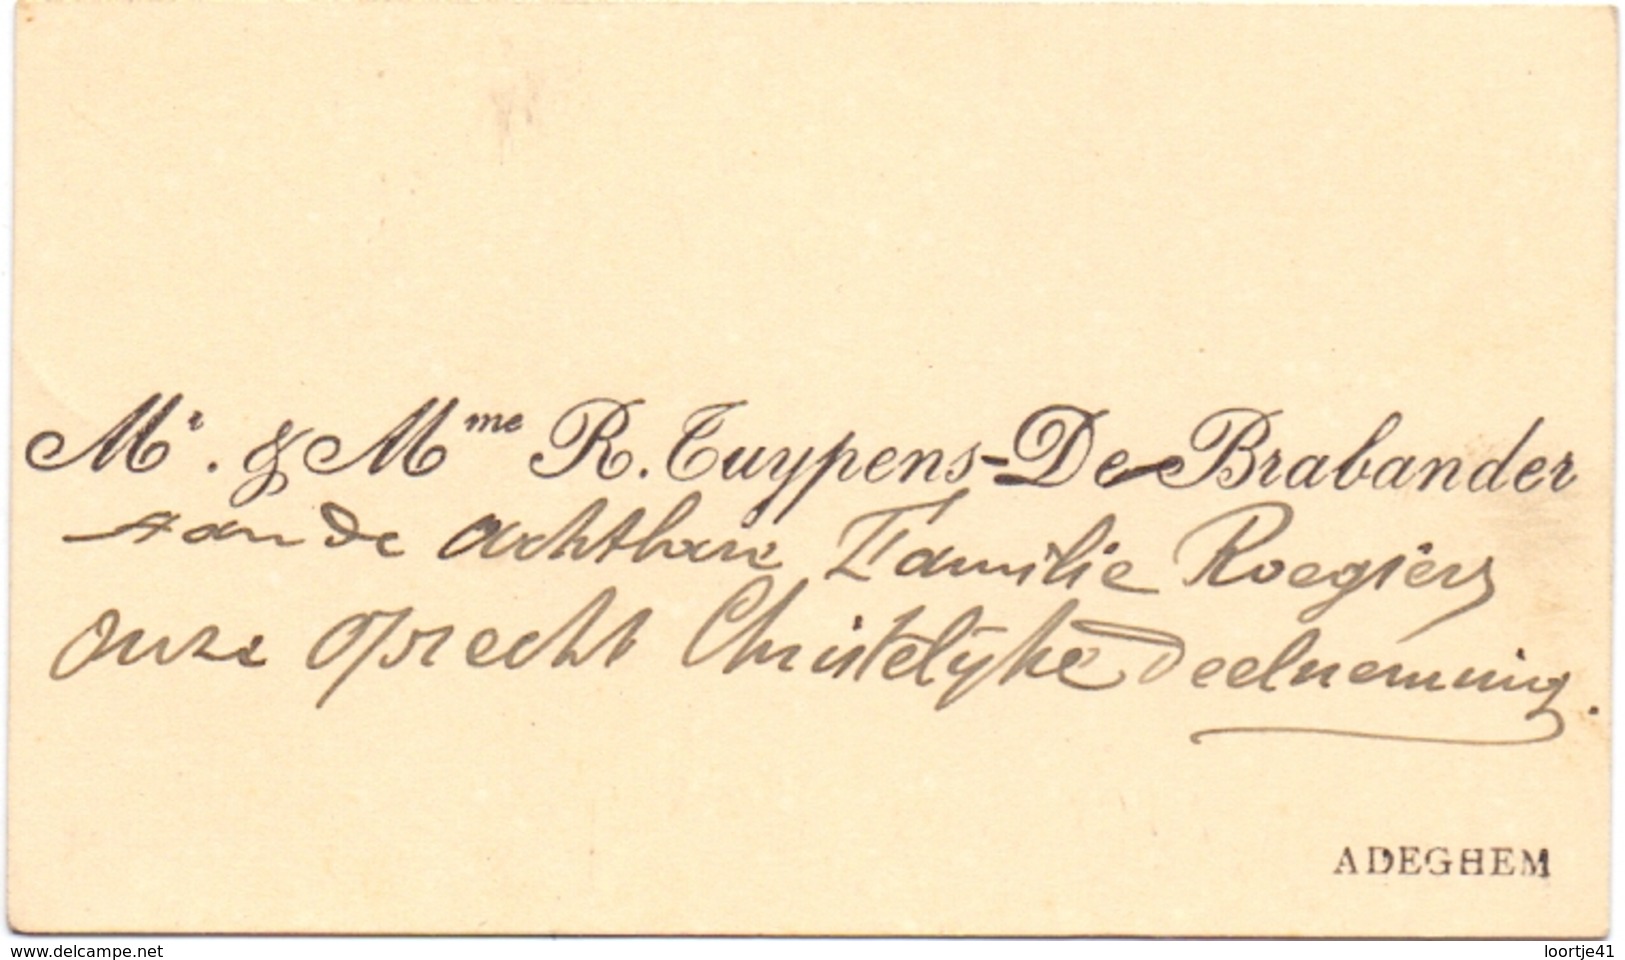 Mr. & Mme R. Tuypens-De Brabander
Aan de achtbare Familie Roegiers
onze oprecht Christelyke Deelnemming.
ADEGHEM
www.delcampe.net
loortje41